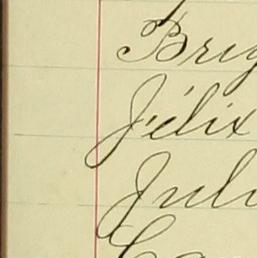 Brig
Felix
Juli